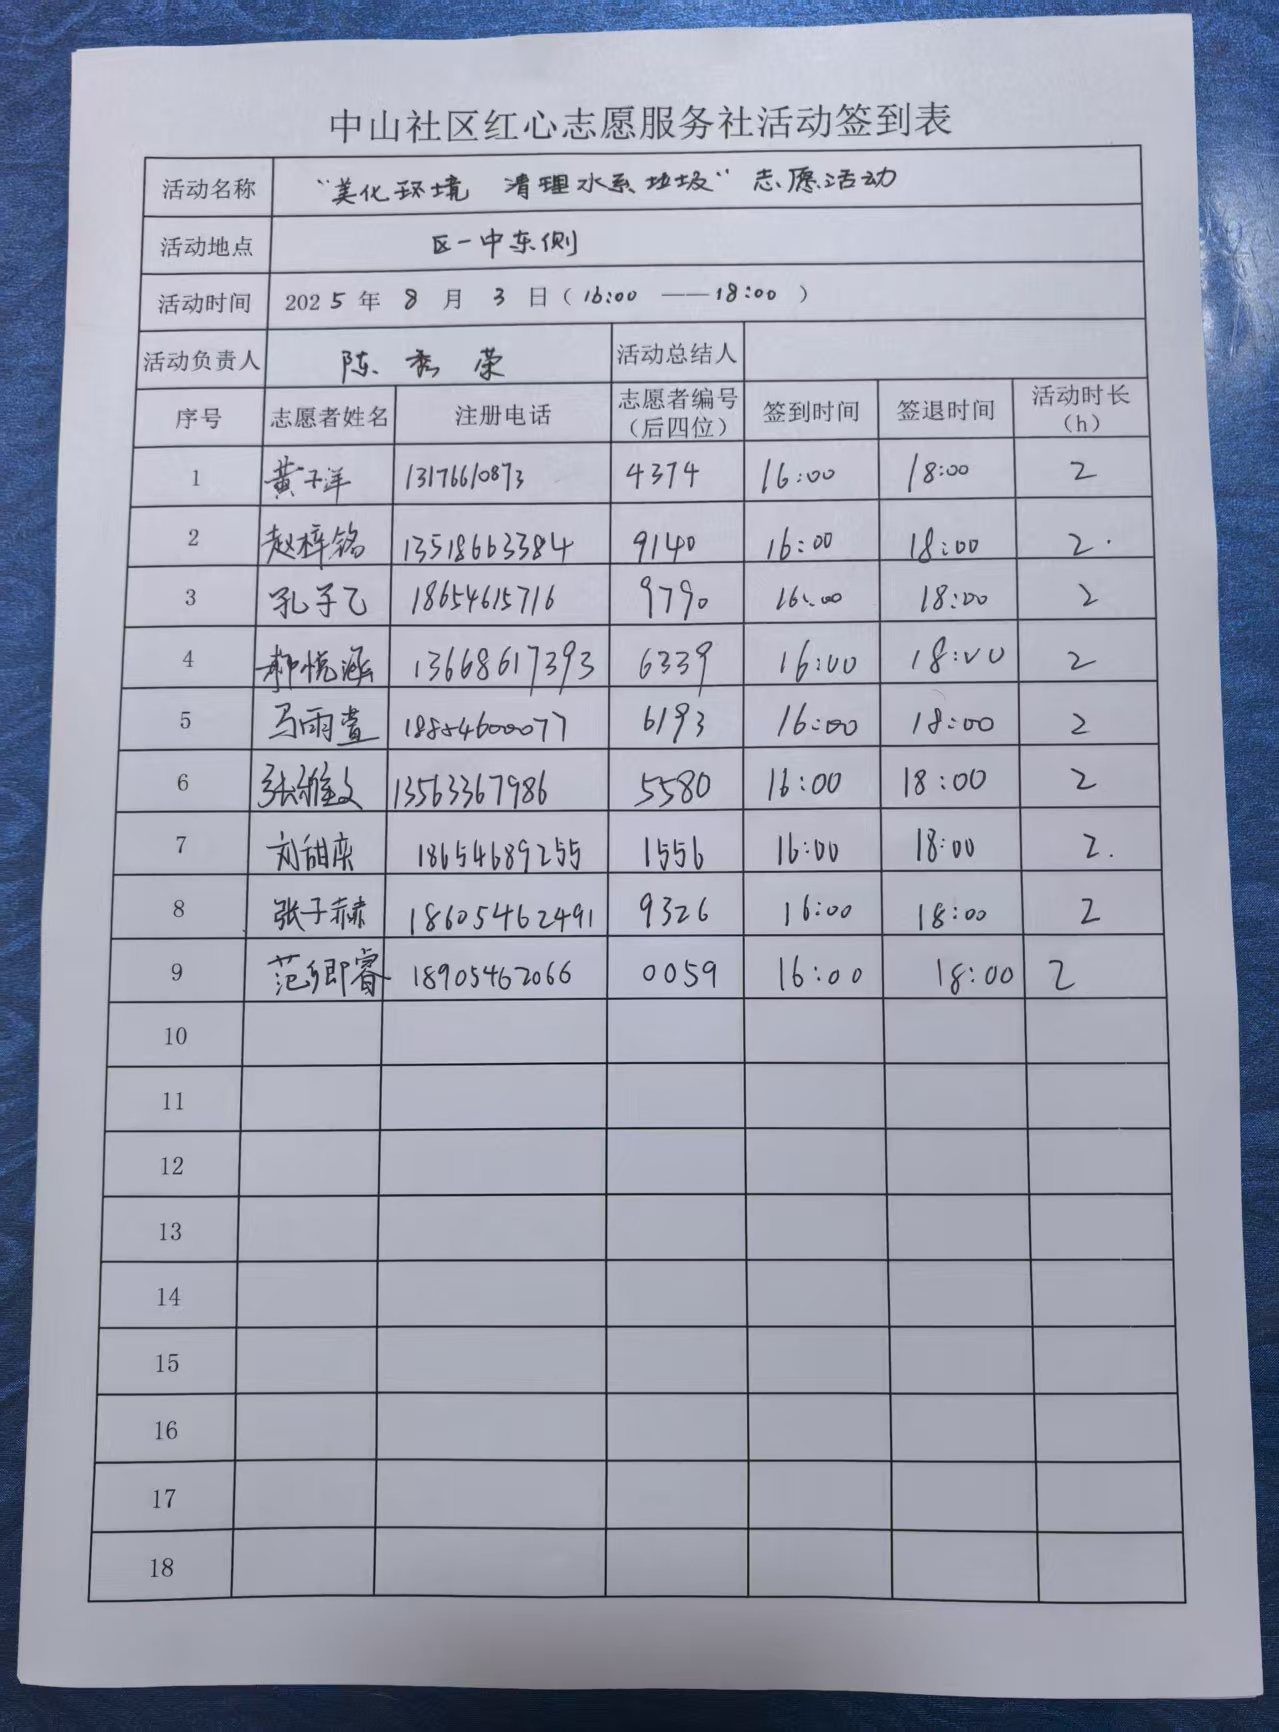 中山社区红心志愿服务社活动签到表
活动名称 “美化环境 清理水系垃圾”志愿活动
活动地点 区一中东侧
活动时间 2025年8月3日(16:00——18:00)
活动负责人 陈秀荣 活动总结人
序号 志愿者姓名 注册电话 志愿者编号(后四位) 签到时间 签退时间 活动时长(h)
1 黄子洋 13176610873 4374 16:00 18:00 2
2 赵梓铭 13518663384 9140 16:00 18:00 2.
3 孔子乙 18654615716 9790 16:00 18:00 2
4 郝悦涵 13668617393 6339 16:00 18:00 2
5 马雨萱 18854600077 6193 16:00 18:00 2
6 张雅文 13563367986 5580 16:00 18:00 2
7 刘甜 18654689255 1556 16:00 18:00 2.
8 张子赫 18605462491 9326 16:00 18:00 2
9 范卿睿 18905462066 0059 16:00 18:00 2
10
11
12
13
14
15
16
17
18